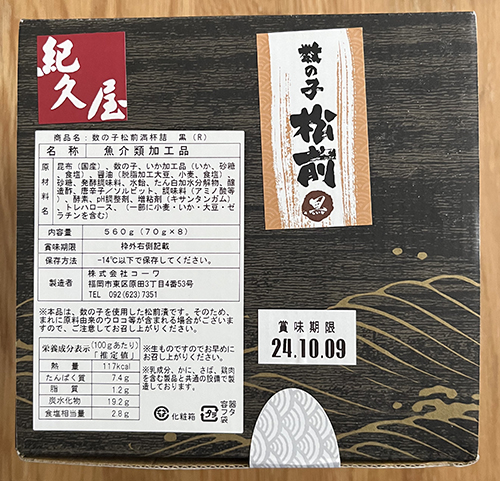 紀久屋
数の子
松前
黒
商品名：数の子松前満杯詰 黒（R）
名称 魚介類加工品
原材料名 昆布（国産）、数の子、いか加工品（いか、砂糖
、食塩）、醤油（脱脂加工大豆、小麦、食塩）、
砂糖、発酵調味料、水飴、たん白加水分解物、醸
造酢、唐辛子／ソルビット、調味料（アミノ酸等
）、酵素、pH調整剤、増粘剤（キサンタンガム）
、トレハロース、（一部に小麦・いか・大豆・ゼ
ラチンを含む）
内容量 560g（70g×8）
賞味期限 枠外右側記載
保存方法 -14℃以下で保存してください。
製造者 株式会社コーワ
福岡市東区原田3丁目4番53号
TEL 092(623)7351
※本品は、数の子を使用した松前漬です。そのため、
まれに原料由来のウロコ等が含まれる場合がございま
すので、ご注意してお召し上がりください。
栄養成分表示（100gあたり）「推定値」
熱量 117kcal
たんぱく質 7.4g
脂質 1.2g
炭水化物 19.2g
食塩相当量 2.8g
※生ものですのでお早めに
お召し上がりください。
※乳成分、かに、さば、鶏肉
を含む製品と共通の設備で製
造しております。
化粧箱
プラ
容器
フタ
袋
賞味期限
24.10.09